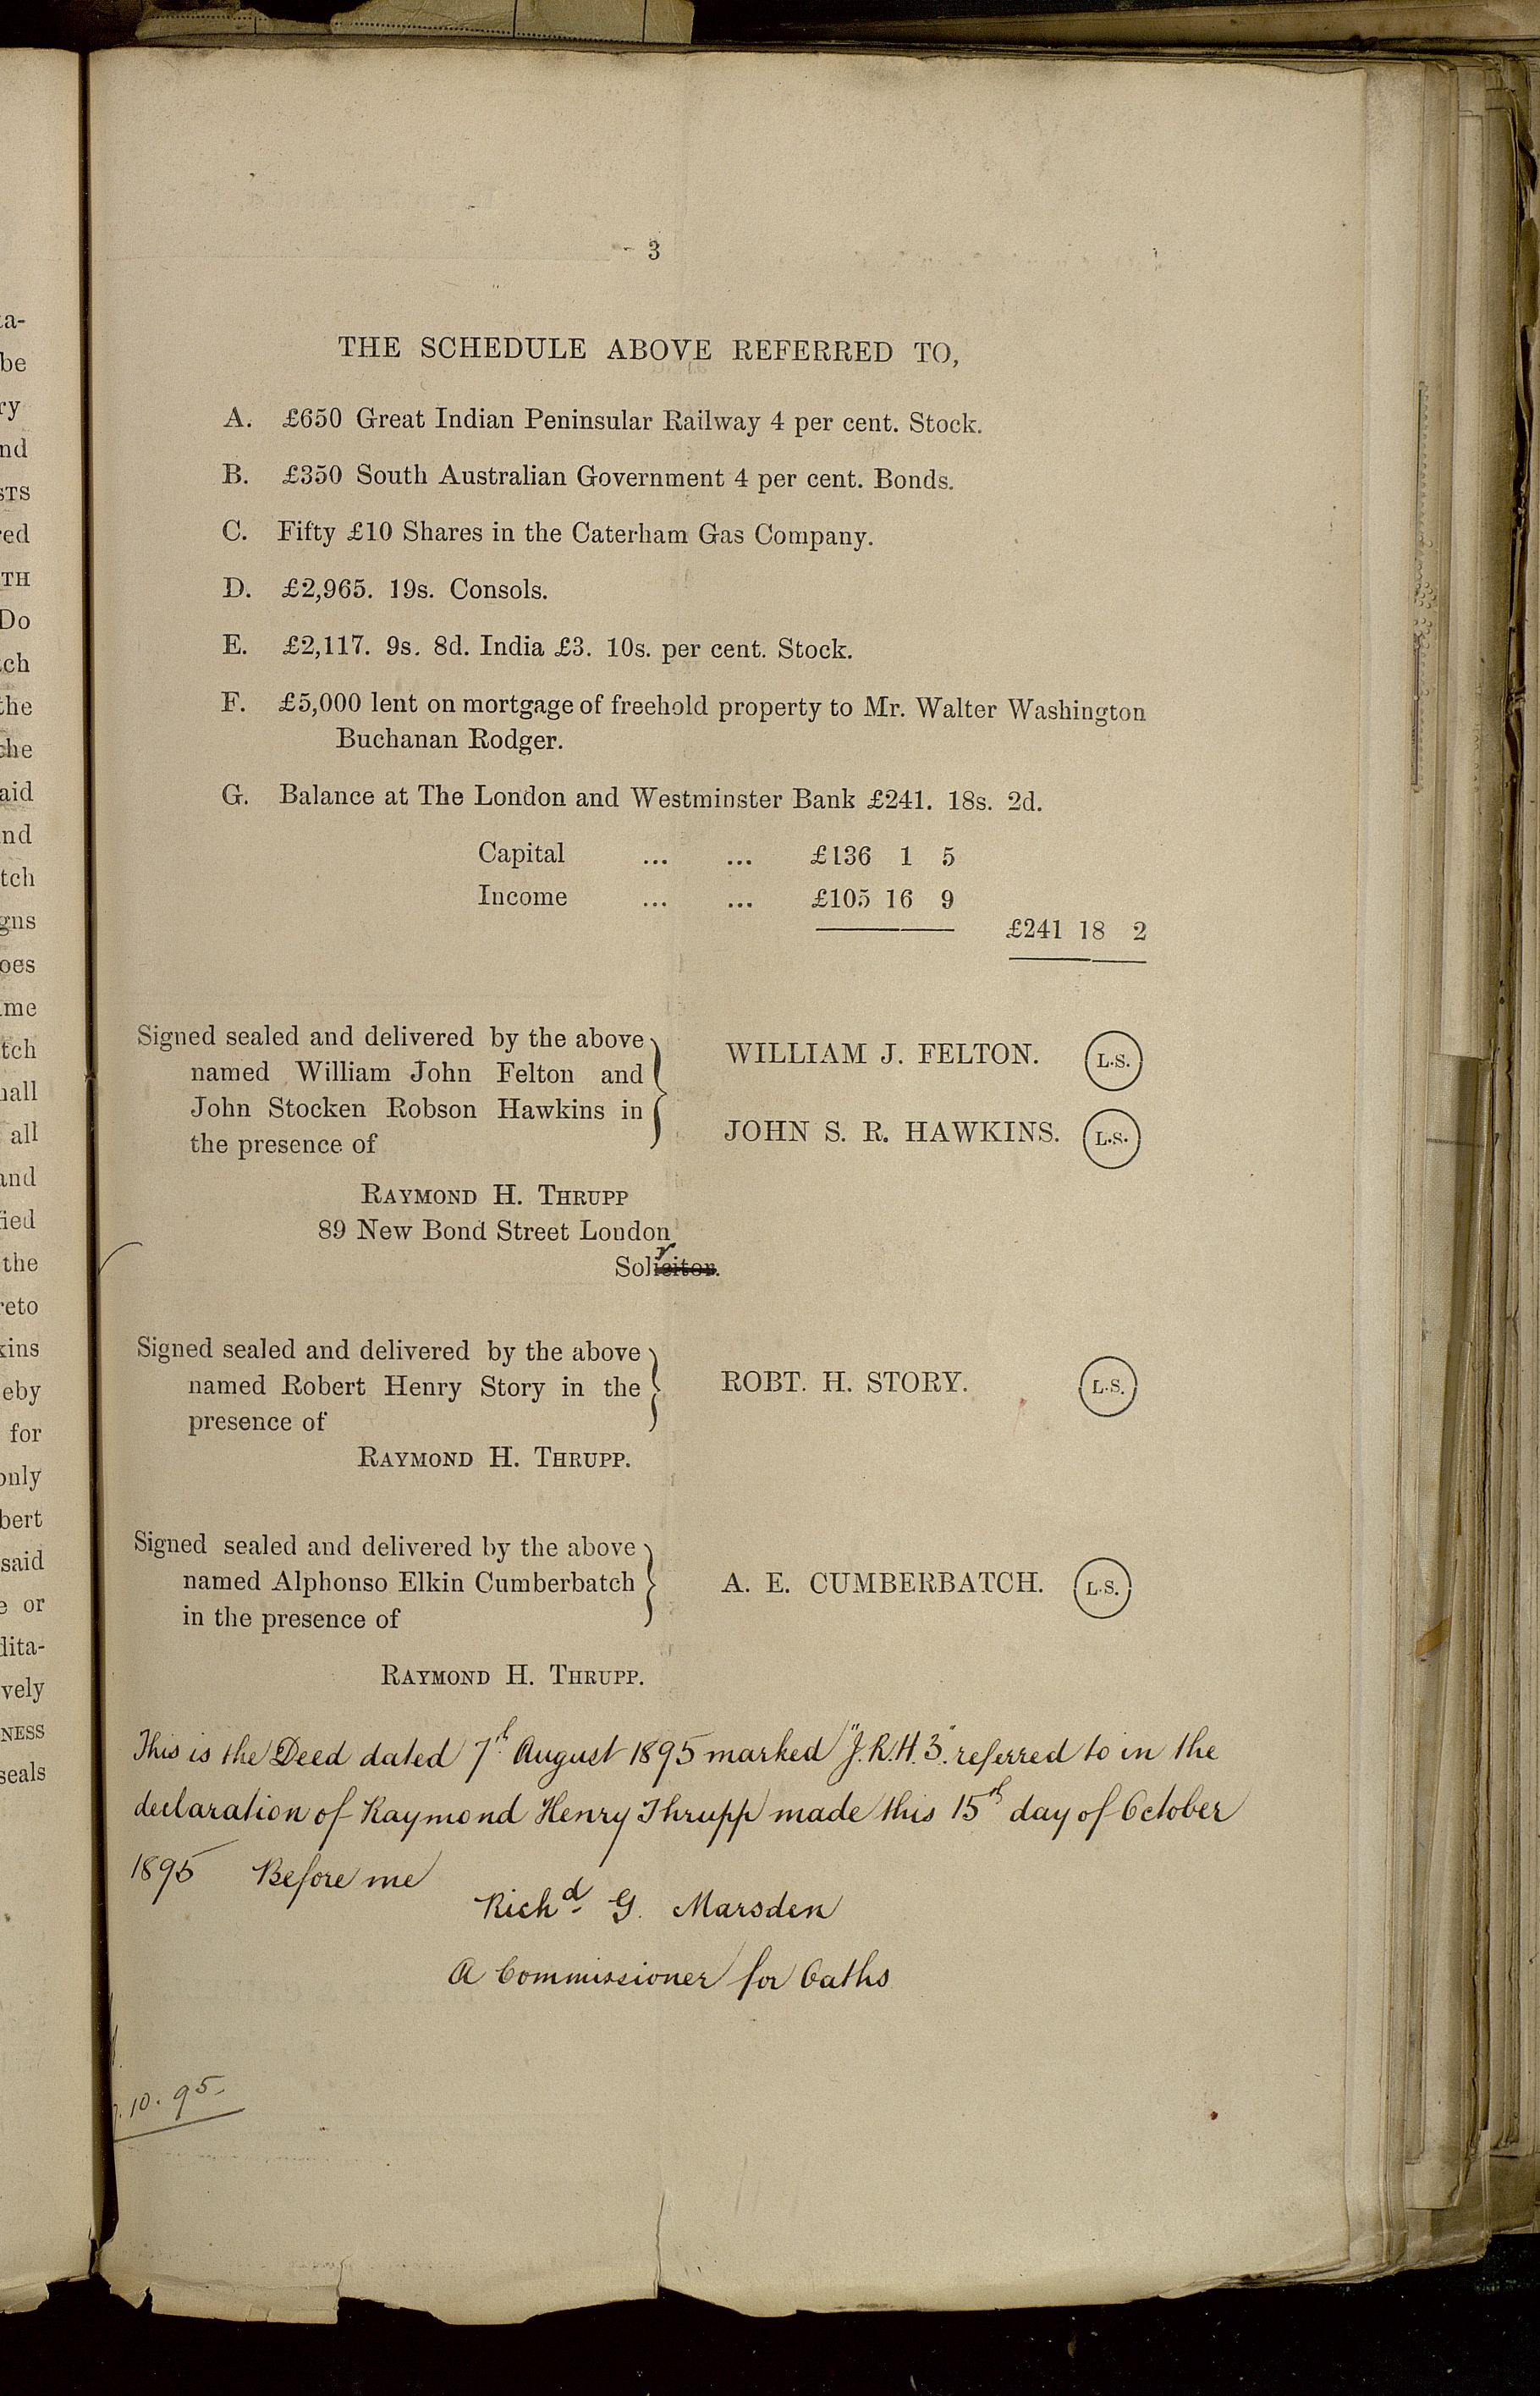 3
THE SCHEDULE ABOVE REFERRED TO,
A. £650 Great Indian Peninsular Railway 4 per cent. Stock.
B. £350 South Australian Government 4 per cent. Bonds.
C. Fifty £10 Shares in the Caterham Gas Company.
D. £2,965. 19s. Consols.
E. £2,117. 9s. 8d. India £3. 10s. per cent. Stock.
F. £5,000 lent on mortgage of freehold property to Mr. Walter Washington
Buchanan Rodger.
G. Balance at The London and Westminster Bank £241. 18s. 2d.
Capital ... ... £136 1 5
Income ... ... £105 16 9
£241 18 2
Signed sealed and delivered by the above
named William John Felton and
John Stocken Robson Hawkins in
the presence of
WILLIAM J. FELTON. L.S.
JOHN S. R. HAWKINS. L.S.
RAYMOND H. THRUPP
89 New Bond Street London
Solicitor.
r
Signed sealed and delivered by the above
named Robert Henry Story in the
presence of
ROBT. H. STORY. L.S.
RAYMOND H. THRUPP.
Signed sealed and delivered by the above
named Alphonso Elkin Cumberbatch
in the presence of
A. E. CUMBERBATCH. L.S.
RAYMOND H. THRUPP.
This is the Deed dated 7th August 1895 marked "J.R.H.3". referred to in the
declaration of Raymond Henry Thrupp made this 15th day of October
1895 Before me
Richd G. Marsden
A Commissioner for Oaths
10. 95
ta-
be
ry
nd
STS
red
TH
Do
tch
the
the
aid
nd
tch
gns
oes
me
tch
hall
all
and
fied
the
reto
kins
eby
for
only
bert
said
e or
dita-
vely
NESS
seals